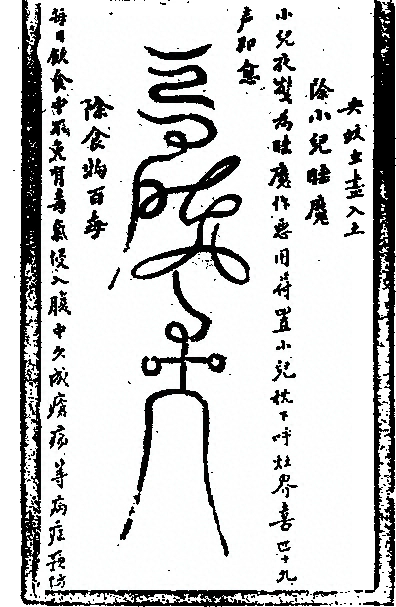 蚊土盡入土
除小兒睡魔
小兒夜驚為睡魔作惡用符置小兒枕下呼灶界喜四十九
声即愈
除食物百毒
每日飲食中不免有毒氣侵入腹中久成等病症預防